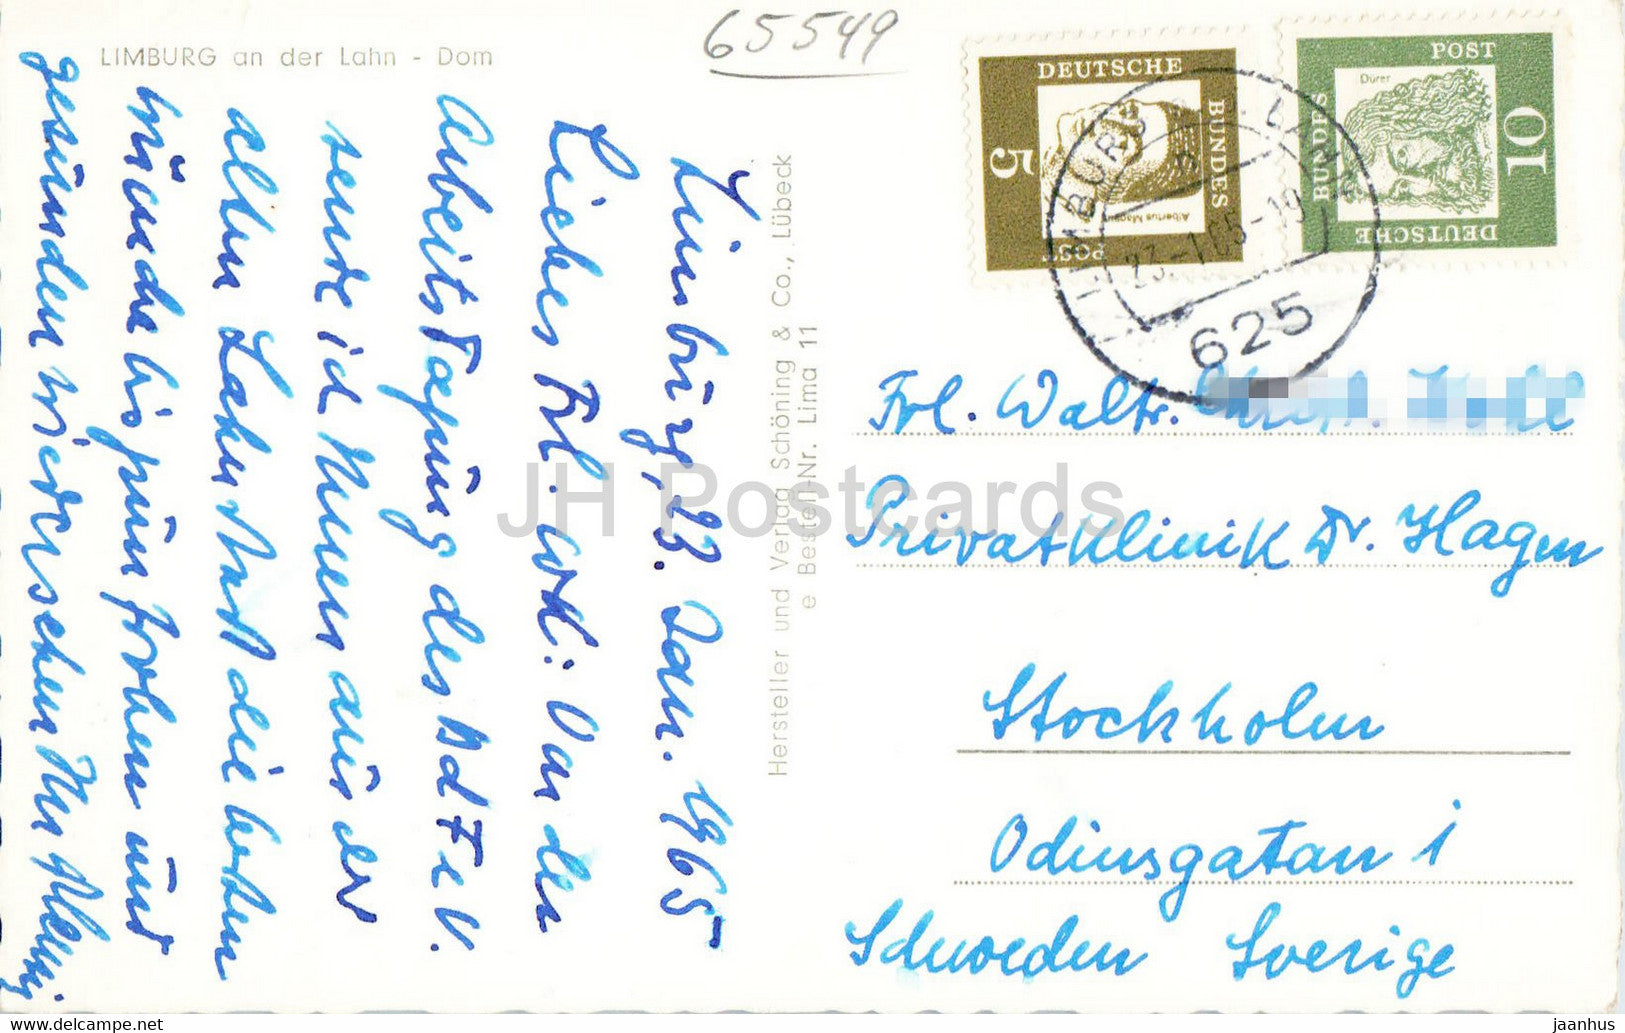 65549
LIMBURG an der Lahn - Dom
Limburg, 23. Jan. 1965
Liebes Frl. Woll: Von der
Arbeitstagung des BdF e.V.
sende ich Ihnen aus der
alten Lahnstadt die besten
Wünsche bis zum frohen und
gesunden Wiedersehen Ihr
Hersteller und Verlag Schöning & Co., Lübeck
e Bestell-Nr. Lima 11
DEUTSCHE
BUNDES
POST
5
Albertus Magnus
POST
BUNDES
DEUTSCHE
10
Dürer
LIMBURG LAHN
23.-1.65-10
625
Frl. Waltr.
Privatklinik Dr. Hagen
Stockholm
Odinsgatan 1
Schweden Sverige
JH Postcards
www.delcampe.net
jaanhus